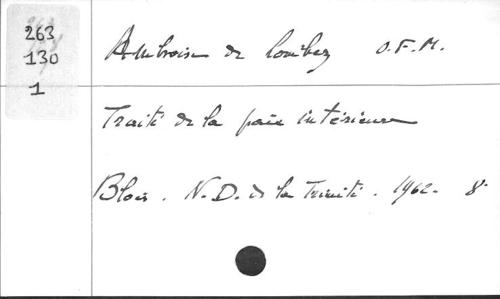 263
130
1
Ambroise de Lombez O.F.M.
Traité de la paix intérieure
Blois. N.D. de la Trinité. 1962. 8°